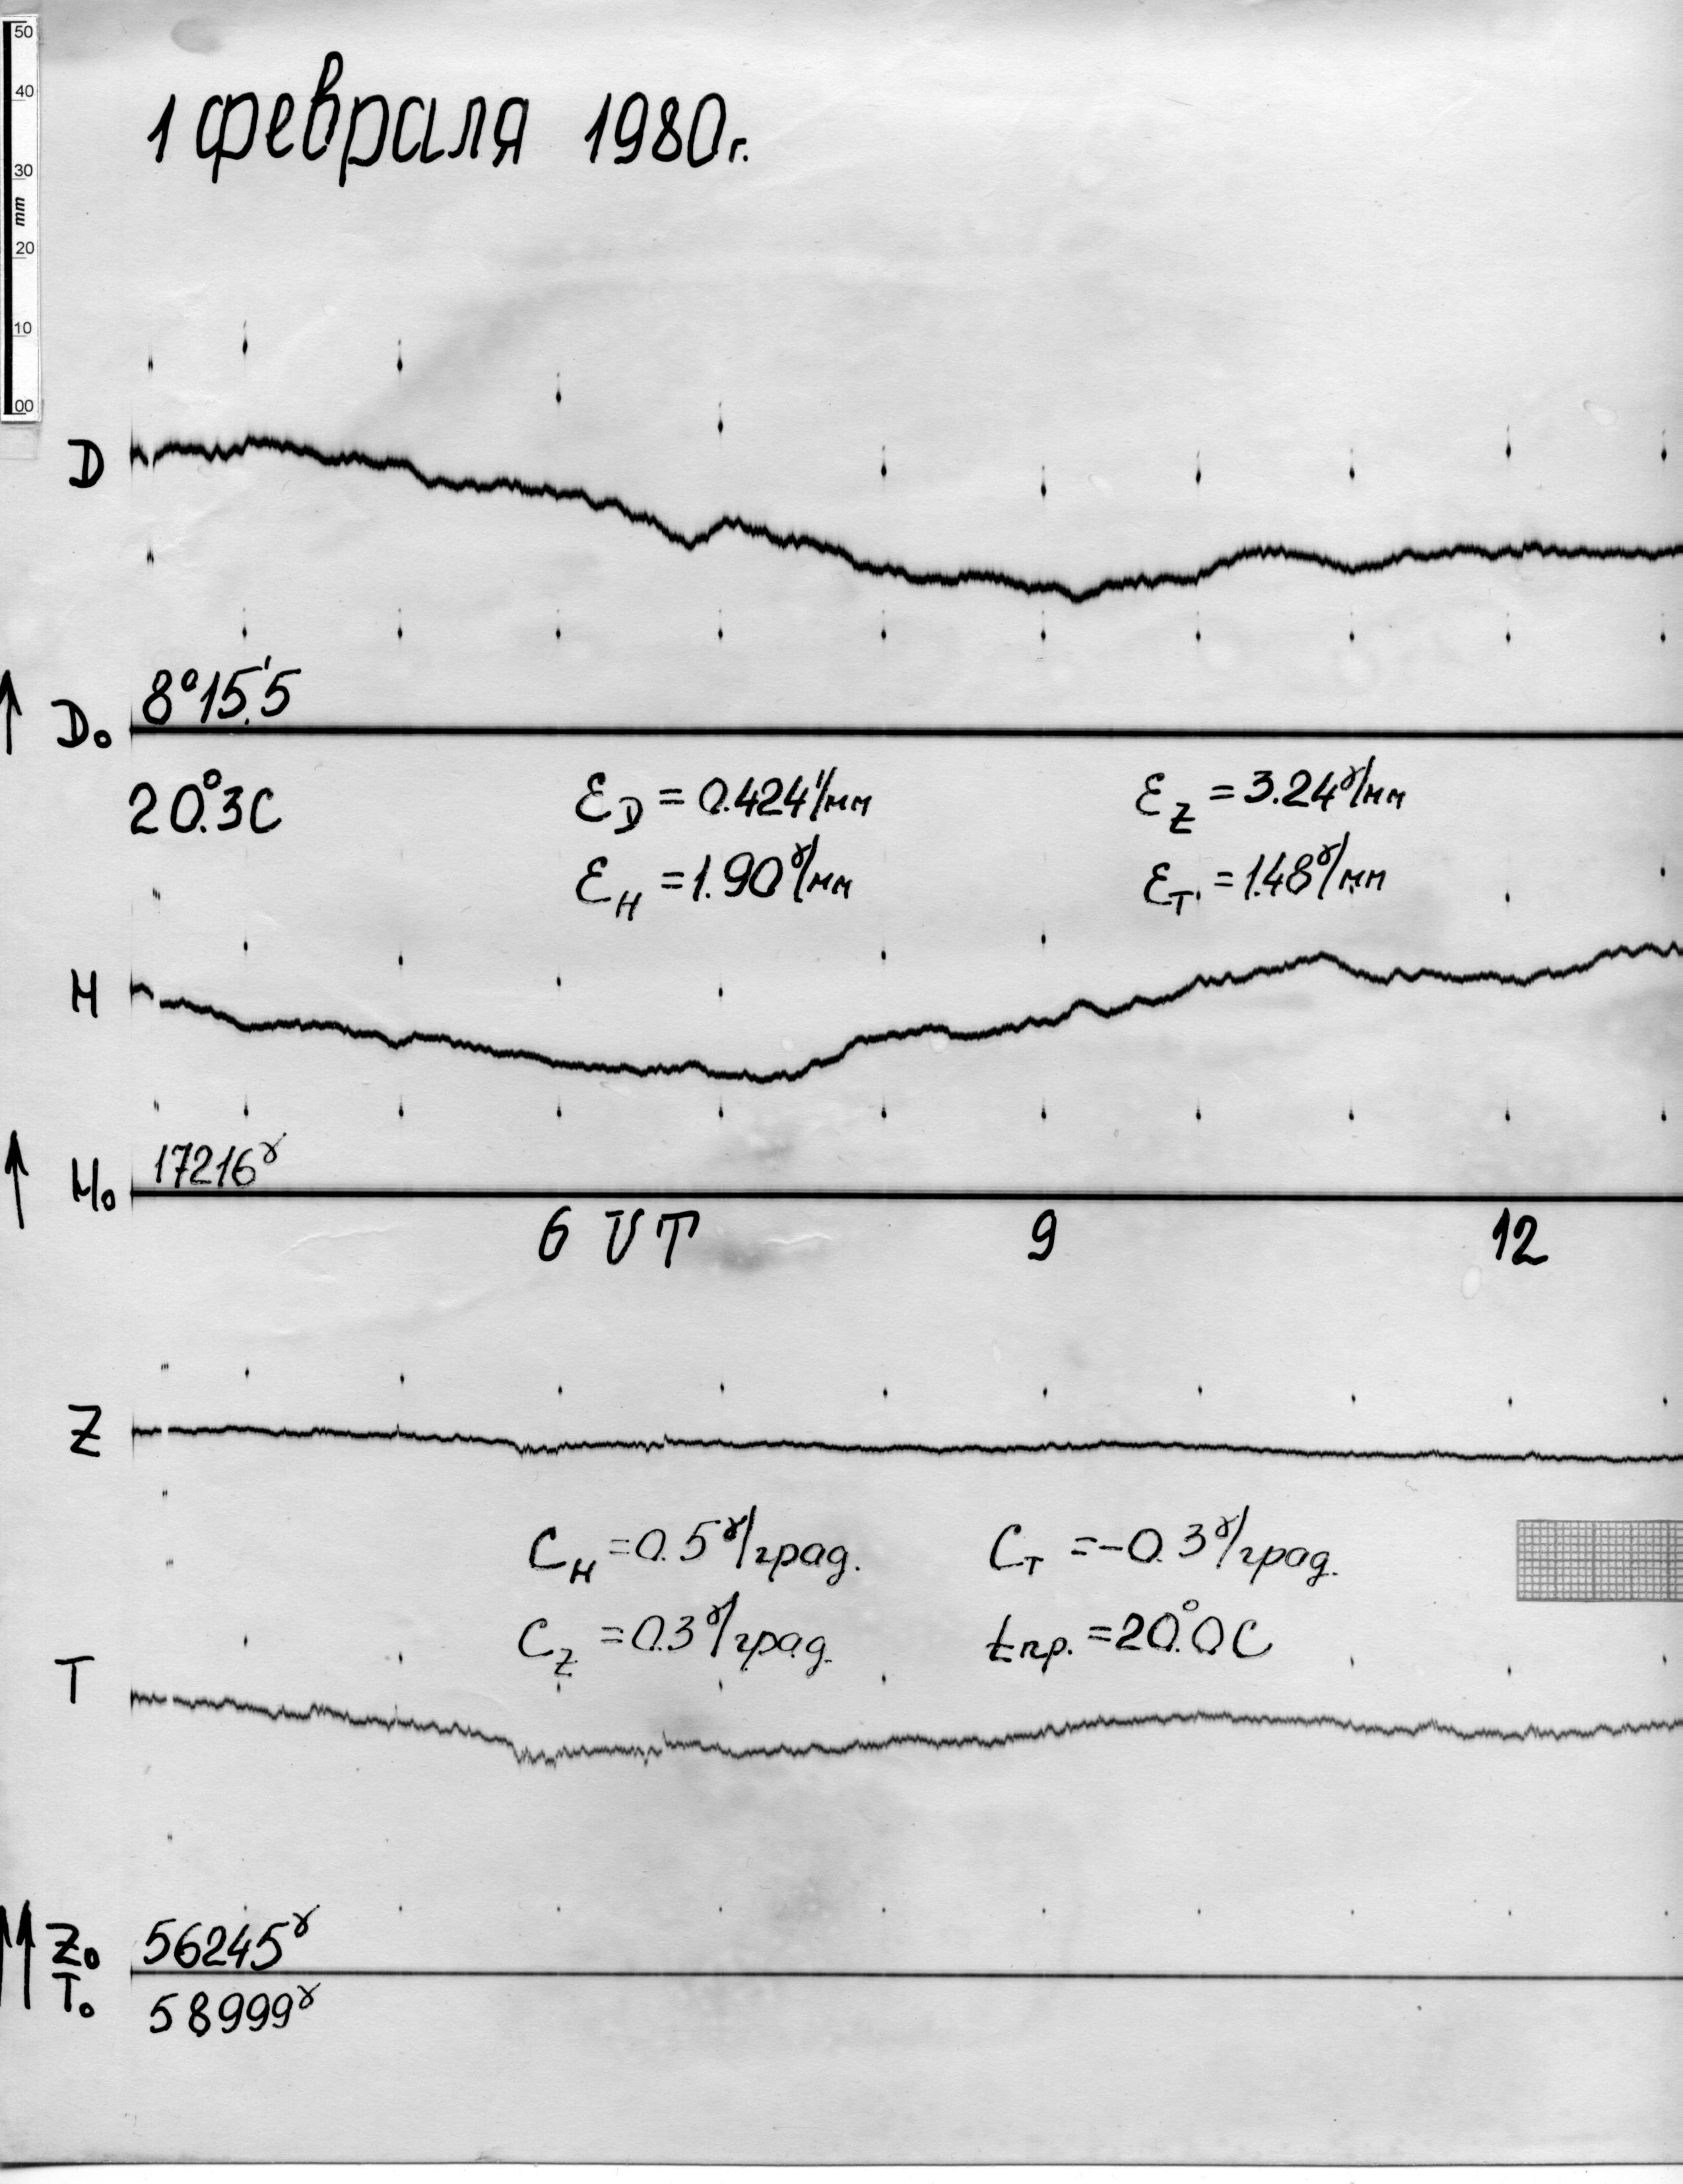 50
40
30
mm
20
10
00
1 февраля 1980г.
D
8°15.'5
D₀
20.°3C
ε_D = 0.424'/мм
ε_Z = 3.24γ/мм
ε_H = 1.90γ/мм
ε_T = 1.48γ/мм
H
17216γ
H₀
6 UT 9 12
Z
C_H = 0.5γ/град.
C_T = -0.3γ/град.
C_Z = 0.3γ/град.
tпр. = 20.°0C
T
Z₀ 56245γ
T₀ 58999γ